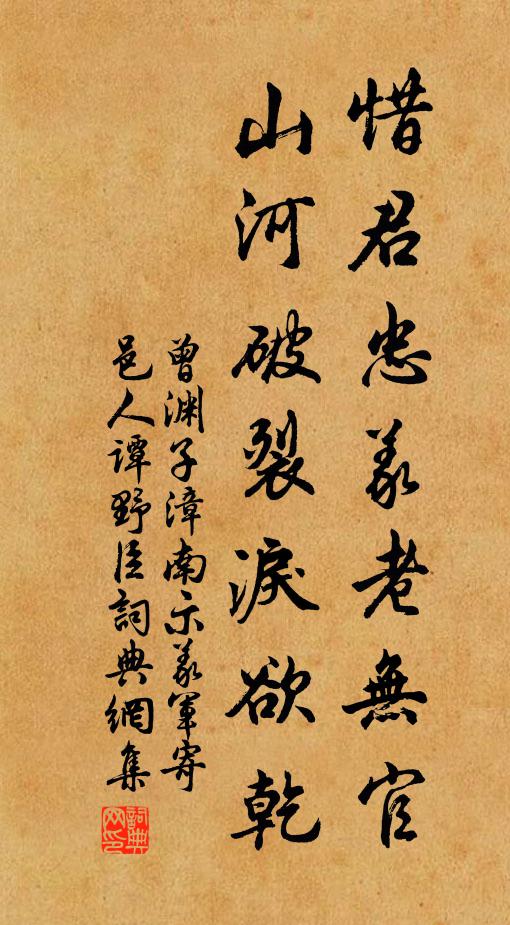 惜君忠義老無官
山河破裂淚欲乾
曾淵子漳南示義軍寄
邑人譚野臣詞典網集
詞典
网印